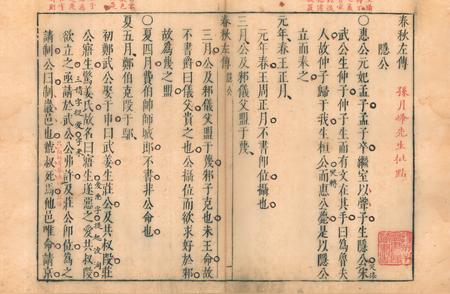 春秋左傳
隱公
孫月峰先生批點
○惠公元妃孟子孟子卒繼室以聲子生隱公宋
武公生仲子仲子生而有文在其手曰爲魯夫
人故仲子歸于我生桓公而惠公薨是以隱公
立而奉之
元年春王正月
元年春王周正月不書即位攝也
三月公及邾儀父盟于蔑
春秋左傳 隱公
三月公及邾儀父盟于蔑邾子克也未王命故
不書爵曰儀父貴之也公攝位而欲求好於邾
故爲蔑之盟
○夏四月費伯帥師城郎不書非公命也
夏五月鄭伯克段于鄢
初鄭武公娶于申曰武姜生莊公及共叔段莊
公寤生驚姜氏故名曰寤生遂惡之愛共叔段
欲立之亟請於武公公弗許及莊公即位爲之
請制公曰制巖邑也虢叔死焉他邑唯命請京